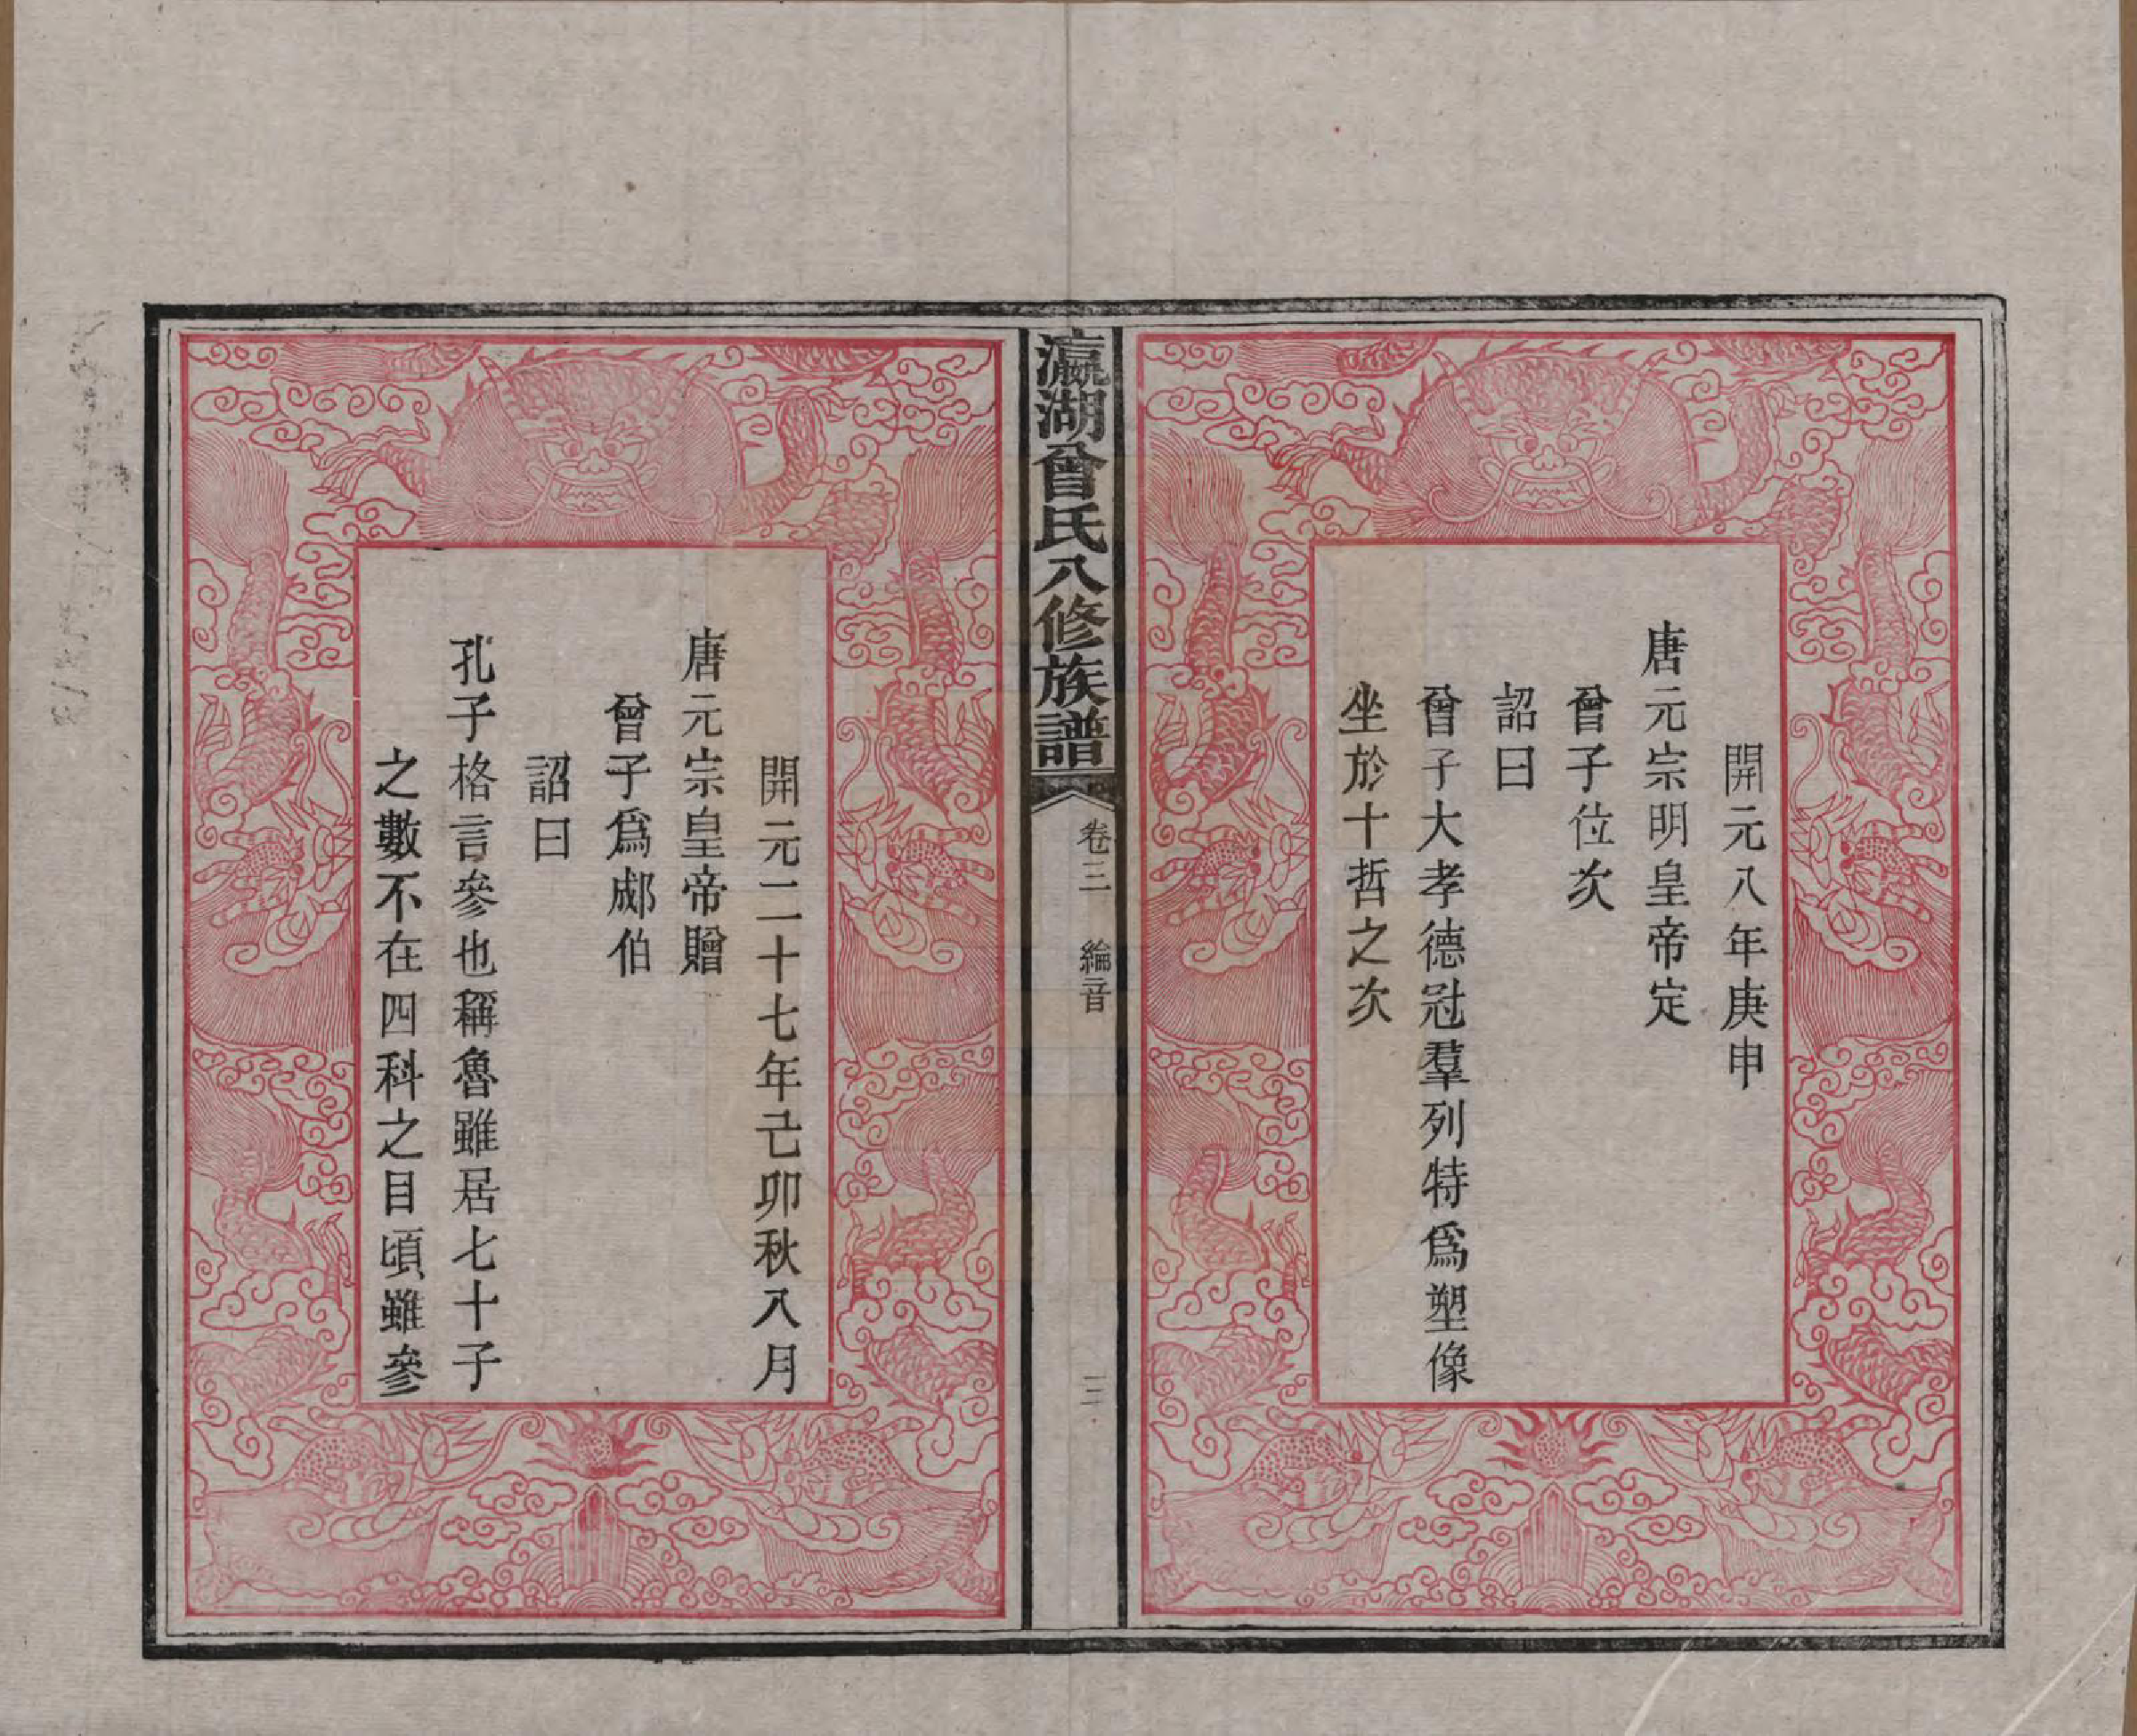 開元八年庚申
唐元宗明皇帝定
曾子位次
詔曰
曾子大孝德冠羣列特爲塑像
坐於十哲之次
瀛湖曾氏八修族譜
卷三 綸音
三
開元二十七年己卯秋八月
唐元宗皇帝贈
曾子爲郕伯
詔曰
孔子格言參也稱魯雖居七十子
之數不在四科之目頃雖參